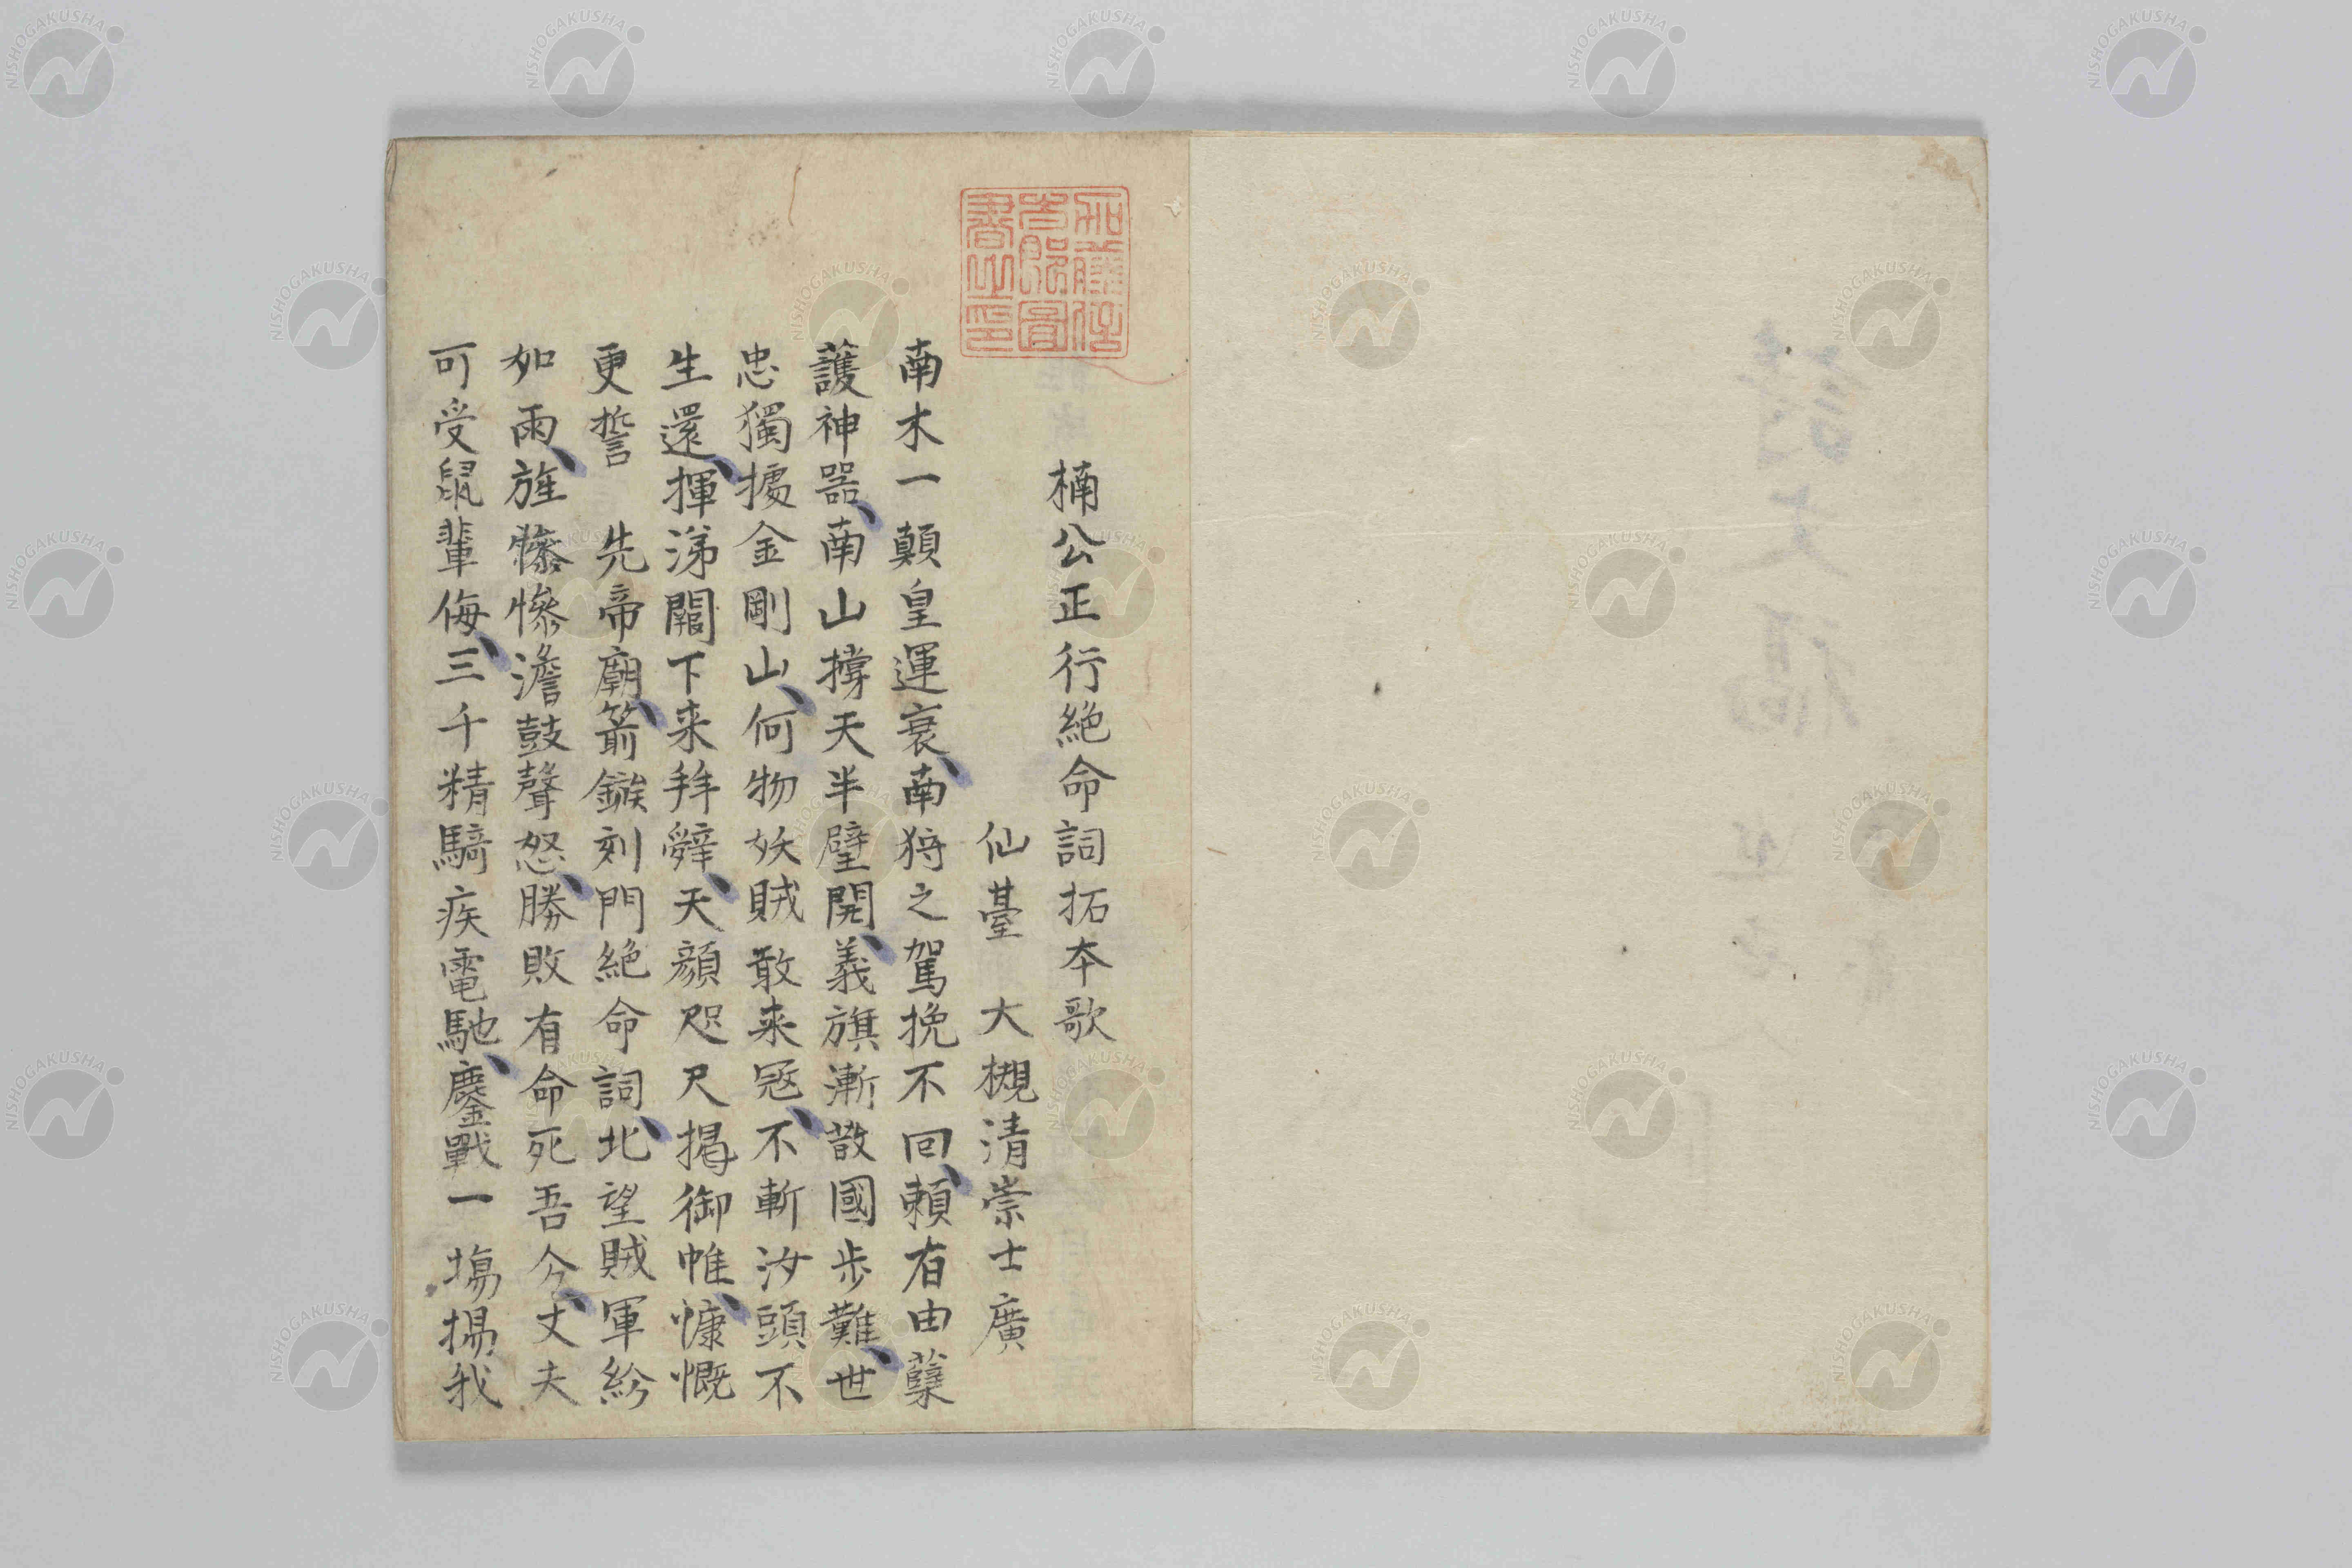 楠公正行絶命詞拓本歌
仙臺　大槻清崇士廣
南木一顛皇運衰、南狩之駕挽不回、賴有由蘖
護神器、南山撐天半壁開、義旗漸散國步難、世
忠獨據金剛山、何物妖賊敢来冦、不斬汝頭不
生還、揮涕闕下来拜辤、天顔咫尺揭御帷、慷慨
更誓　先帝廟、箭鏃刻門絶命詞、北望賊軍紛
如雨、旌　慘澹鼓聲怒、勝敗有命死吾分、丈夫
可受鼠輩侮、三千精騎疾電馳、鏖戰一塲揚我
NISHOGAKUSHA